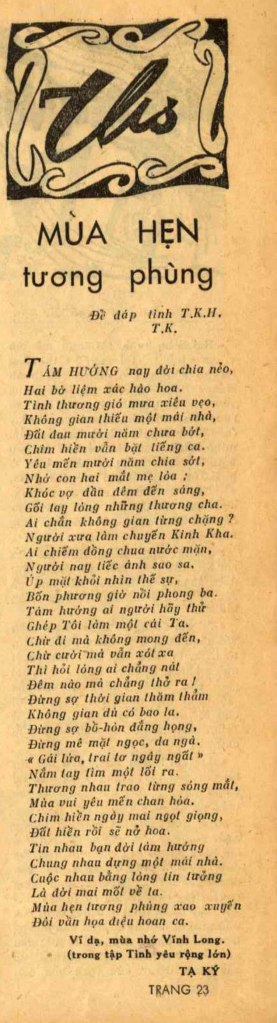 Thơ
MÙA HẸN
tương phùng
Đề đáp tình T.K.H.
T.K.
TÂM HƯỚNG nay đời chia nẻo,
Hai bờ liệm xác hào hoa.
Tình thương gió mưa xiêu vẹo,
Không gian thiếu một mái nhà,
Đất đau mười năm chưa bớt,
Chim hiền vẫn bặt tiếng ca.
Yêu mến mười năm chia sớt,
Nhờ con hai mắt mẹ lòa ;
Khóc vợ dầu đêm đến sáng,
Gối tay lỏng những thương cha.
Ai chắn không gian từng chặng ?
Người xưa làm chuyến Kinh Kha.
Ai chiếm đồng chua nước mặn,
Người nay tiếc ánh sao sa.
Úp mặt khỏi nhìn thế sự,
Bốn phương giờ nổi phong ba.
Tâm hướng ai người hãy thử
Ghép Tôi làm một cái Ta.
Chừ đi mà không mong đến,
Chừ cười mà vẫn xót xa
Thì hỏi lòng ai chẳng nát
Đêm nào mà chẳng thở ra !
Đừng sợ thời gian thăm thẳm
Không gian dù có bao la.
Đừng sợ bồ-hòn đắng họng,
Đừng mê mặt ngọc, da ngà.
« Gái lứa, trai tơ ngây ngất »
Nắm tay tìm một lối ra.
Thương nhau trao từng sóng mắt,
Mùa vui yêu mến chan hòa.
Chim hiền ngày mai ngọt giọng,
Đất hiền rồi sẽ nở hoa.
Tin nhau bạn đời tâm hướng
Chung nhau dựng một mái nhà.
Cuộc nhau bằng lòng tin tưởng
Là đời mai mốt về ta.
Mùa hẹn tương phùng xao xuyến
Đôi vần họa điệu hoan ca.
Vĩ dạ, mùa nhớ Vĩnh Long.
(trong tập Tình yêu rộng lớn)
TẠ KÝ
TRANG 23